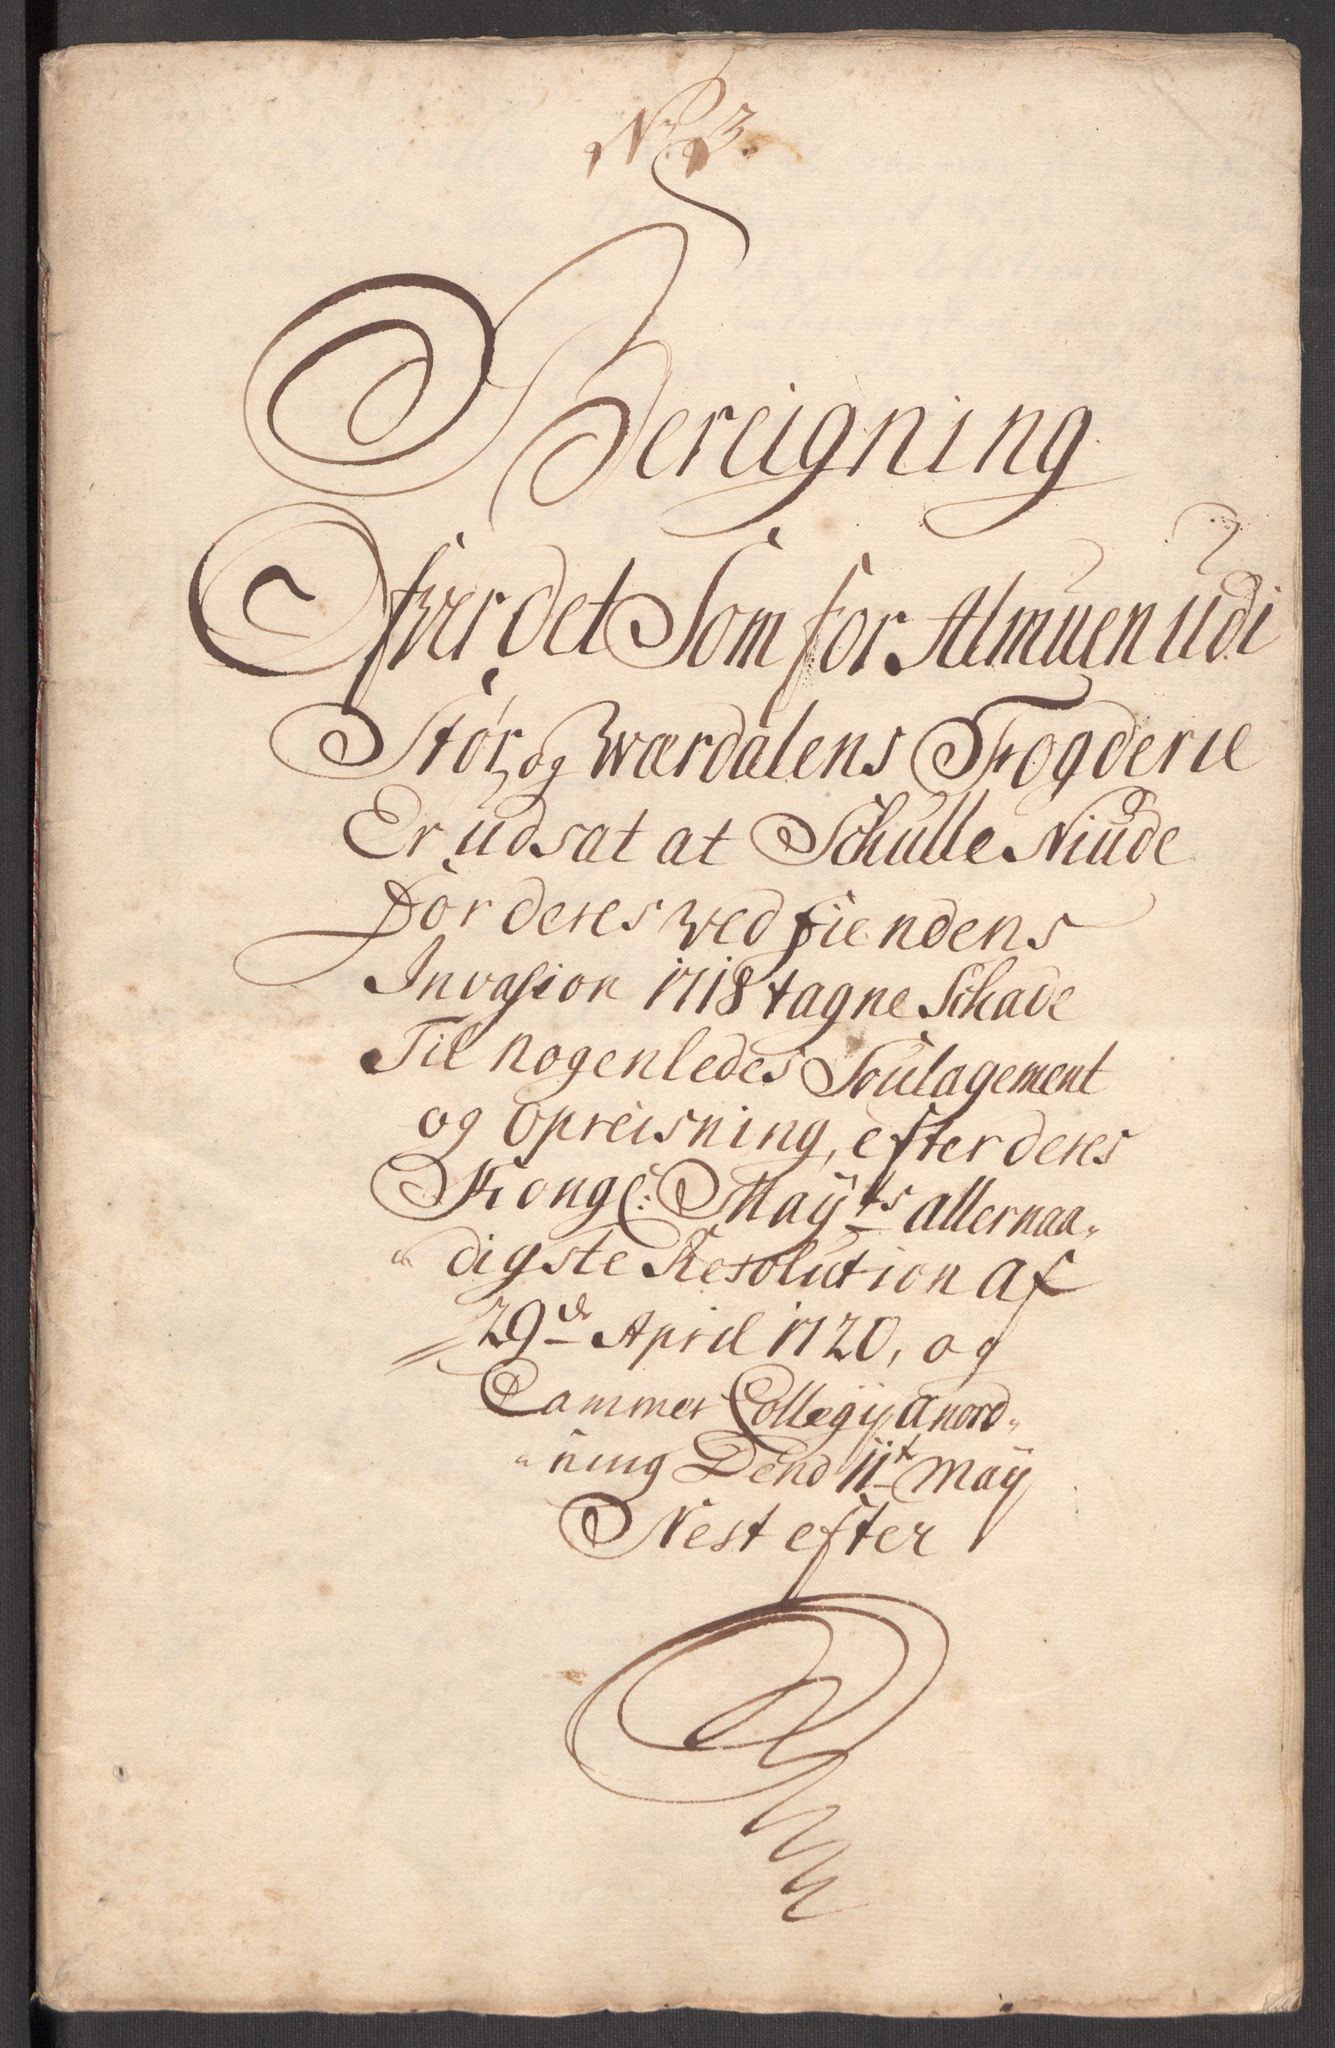 No 3.
Bereigning
Ofver det Som for Almuen udi
Stør, og Wærdalens Fogderie
Er udsat at Schulle Niude
for deres ved fiendens
Invasion 1718 tagne Schade
Til nogenledes Soulagement
og Opreisning, efter deres
Kongl: Mayts allernaa„
„digste Resolution af
29de April 1720, og
Cammer Collegij anord„
„ning Dend 11t May
Nest efter